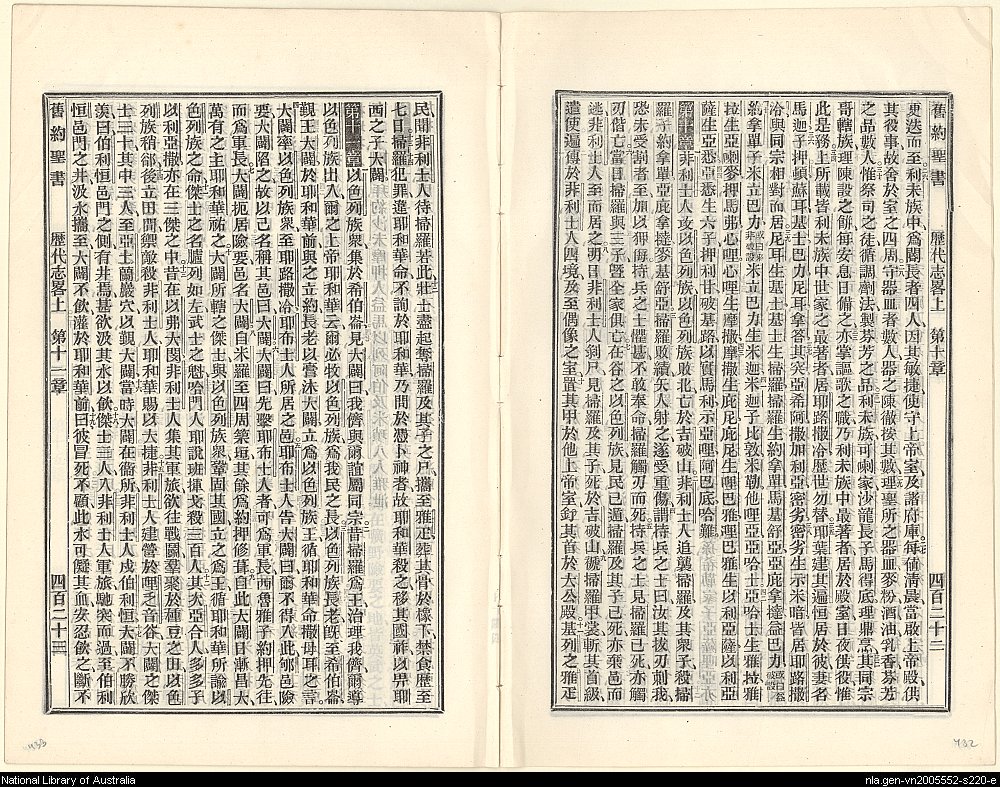 舊約聖書 歷代志畧上 第十章 四百二十二
更迭而至、利未族中爲閽長者四人、因其敏捷、使守上帝室、及諸府庫、每値淸晨、當啟上帝殿、供
其役事、故舍於室之四周、守器皿者數人、器之陳徹、按其數、理聖所之器皿、麥粉酒油乳香芬芳
之品數人、惟祭司之徒、循調劑法、製芬芳之品、利未族可喇家沙龍長子馬得底理鼎烹、其同宗
哥轄族理陳設之餅、每安息日備之、亦掌謳歌之職、乃利未族中最著者、居於殿室、日夜供役、惟
此是務、上所載皆利未族中世家之最著者、居耶路撒冷、歷世勿替、耶葉建其邑基遍、恒居於彼、妻名
馬迦、子押頓、蘇耳、基士、巴力、尼耳、拿答、其突、亞希阿、撒加利亞、密劣、密劣生示米暗、皆居耶路撒
冷、與同宗相對而居、尼耳生基士、基士生掃羅、掃羅生約拿單、馬基舒亞、亞庇拿撻、益巴力、
約拿單子米立巴力、米立巴力生米迦、米迦子比敦、米勒、他哩亞、亞哈士、亞哈士生雅拉、雅
拉生亞喇麥、押馬弗、心哩、心哩生摩撒、摩撒生庇尼亞、
薩生亞悉、亞悉生六子、
第十章 非利士人攻以色列族、以色列族敗北、亡於吉破山、非利士人追襲掃羅、及其衆子、殺掃
羅子約拿單、亞庇拿撻、麥基舒亞、掃羅敗績、矢人射之、遂受重傷、謂持兵之士曰、汝其拔刃刺我、
恐未受割者至、加以狎侮、持兵之士懼甚、不敢奉命、掃羅觸刃而死、持兵之士見掃羅已死、亦觸
刃偕亡、當日掃羅與三子、曁全家俱亡、在谷之以色列族、見民已遁、掃羅及其子已死、亦棄邑而
逃、非利士人至而居之、明日非利士人剝尸、見掃羅及其子死於吉破山、褫掃羅甲裳、斬其首級、
遣使遍傳於非利士人四境、及至偶像之室、置其甲於他上帝室、釘其首於大公殿、基列之雅疋
民聞非利士人待掃羅若此、壯士盡起、奪掃羅及其子之尸、攜至雅疋、葬其骨於橡下、禁食歷至
七日、掃羅犯罪、違耶和華命、不詢於耶和華、乃問於憑卜神者、故耶和華殺之、移其國祚以畀耶
西之子大闢、
第十一章 以色列族衆集於希伯崙、見大闢曰、我儕與爾誼屬同宗、昔掃羅爲王、治理我儕、爾導
以色列族出入、爾之上帝耶和華云、爾必牧以色列族、爲我民之長、以色列族長老旣至希伯崙
覲王、大闢於耶和華前、與之立約、長老以膏沐大闢、立爲以色列族王、循耶和華命撒母耳之言、
大闢率以色列族衆至耶路撒冷、耶布士人所居之邑、耶布士人告大闢曰、爾不得入此郇邑險
要、大闢陷之、故以己名稱其邑曰大闢、大闢曰、先擊耶布士人者、可爲軍長、西魯雅子約押先往、
而爲軍長、大闢扼居險要、邑名大闢、自米羅至四周築垣、其餘爲約押修葺、自此大闢日漸昌大、
萬有之主耶和華祐之、大闢所轄之傑士、與以色列族衆鞏固其國、立之爲王、循耶和華所諭以
色列族之命、傑士之名臚列如左、武士之魁、哈門人耶說班、揮戈殺三百人、其次亞合人多多子
以利亞撒、亦在三傑之中、昔在以弗大閔、非利士人集其軍旅、欲往戰鬭、羣聚於種荳之田、以色
列族稍卻、後立田間禦敵、殺非利士人、耶和華賜以大捷、非利士人建營於哩乏音谷、大闢之傑
士三十、其中三人至亞土蘭巖穴、以覲大闢、當時大闢在衞所、非利士人戍伯利恒、大闢不勝欣
羨曰、伯利恒邑門之側有井、焉甚欲汲其水以飲、傑士三人入非利士人軍旅、馳突而過、至伯利
恒邑門之井、汲水攜至、大闢不飲、灌於耶和華前、曰、彼冒死不顧、此水可儗其血、安忍飲之、斷不
舊約聖書 歷代志畧上 第十一章 四百二十三
432
433
National Library of Australia
nla.gen-vn2005552-s220-e